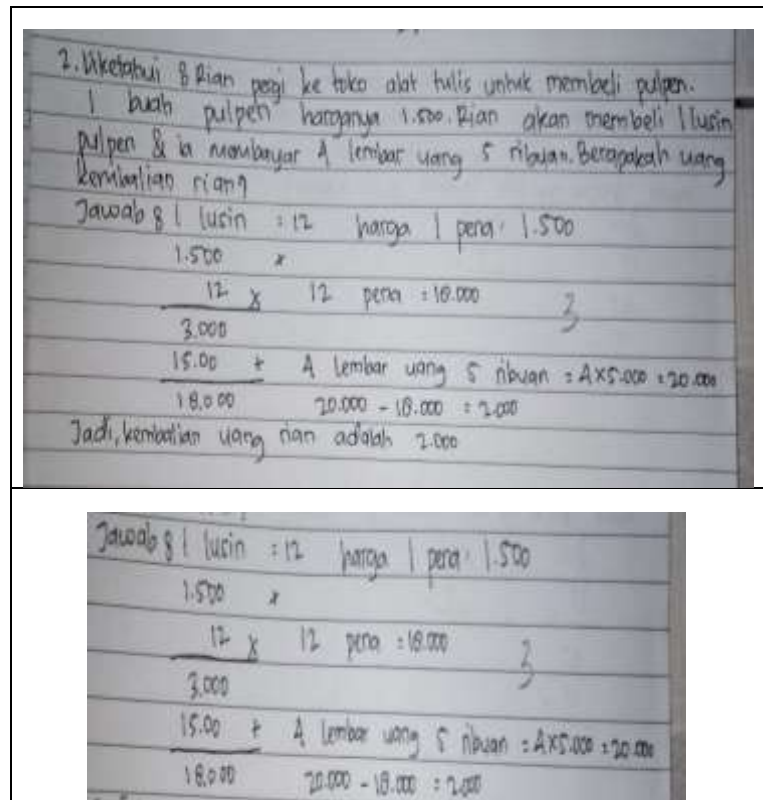 2. Diketahui : Rian pergi ke toko alat tulis untuk membeli pulpen.
1 buah pulpen harganya 1.500. Rian akan membeli 1 lusin
pulpen & ia membayar 4 lembar uang 5 ribuan. Berapakah uang
kembalian rian?
Jawab : 1 lusin = 12 harga 1 pena : 1.500
1.500 x
12 x 12 pena = 18.000 3
3.000
15.00 + 4 lembar uang 5 ribuan = 4x5.000 = 20.000
18.000 20.000 - 18.000 = 2.000
Jadi, kembalian uang rian adalah 2.000
Jawab : 1 lusin = 12 harga 1 pena : 1.500
1.500 x
12 x 12 pena = 18.000 3
3.000
15.00 + 4 lembar uang 5 ribuan = 4x5.000 = 20.000
18.000 20.000 - 18.000 = 2.000